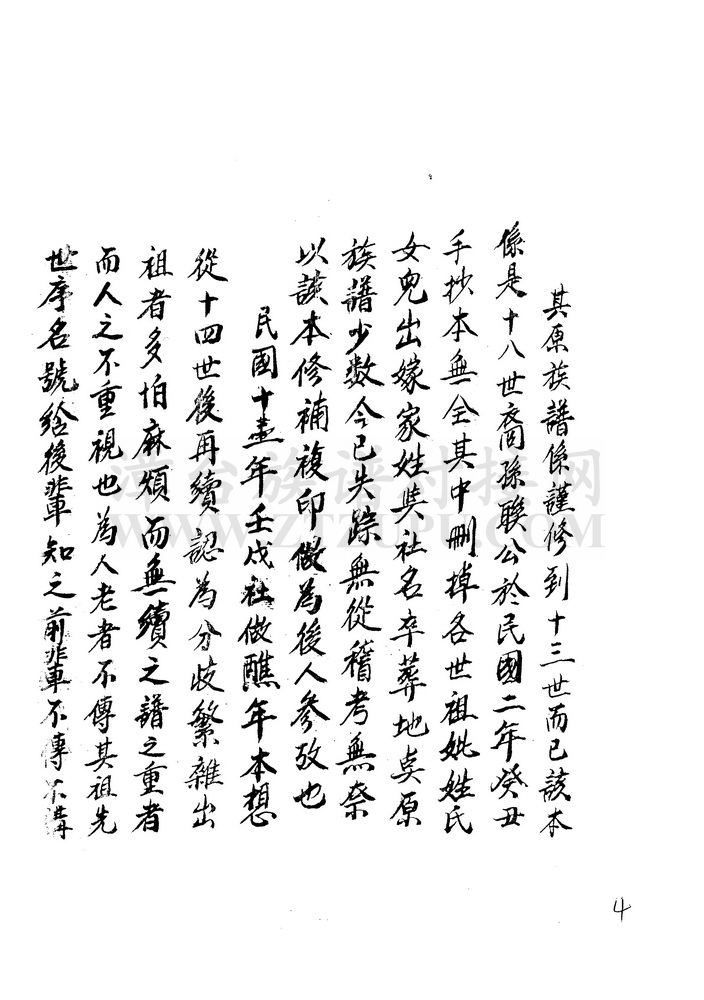 其原族譜係謹修到十三世而已該本
係是十八世裔孫聯公於民國二年癸丑
手抄本無全其中刪掉各世祖妣姓氏
女兒出嫁家姓與社名卒葬地與原
族譜少数今已失踪無從稽考無奈
以該本修補複印做為後人參攷也
民國十壹年壬戌社做醮年本想
從十四世後再續認為分歧繁雜出
祖者多怕麻煩而無續之譜之重者
而人之不重視也為人老者不傳其祖先
世序名號給後輩知之前輩不傳不講
4
河台族谱对接网
WWW.ZTZUPU.COM